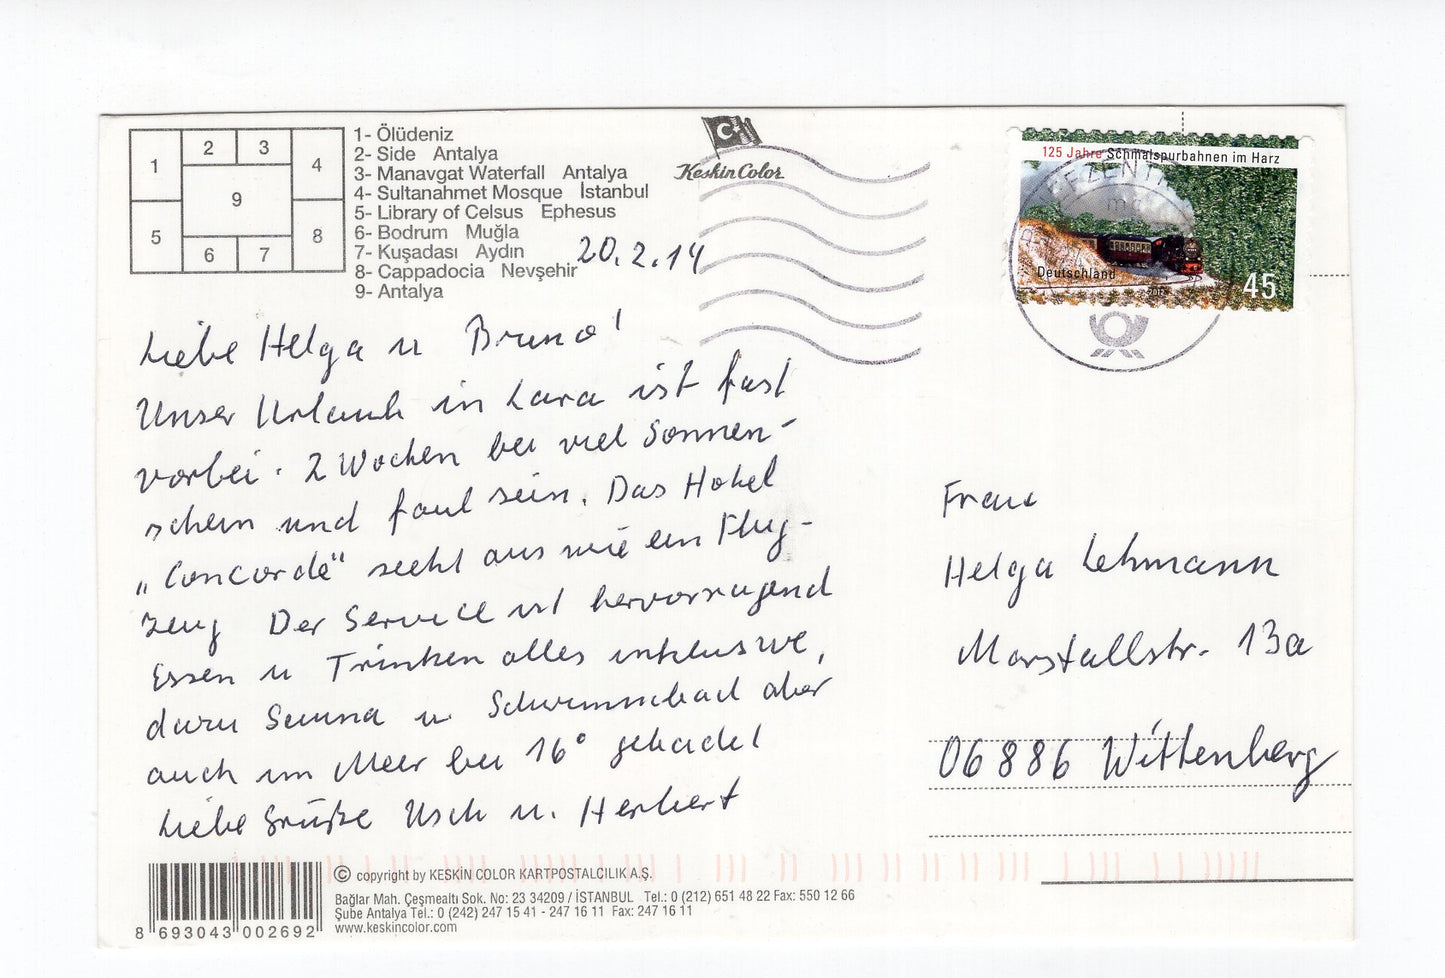 1 2 3 4 5 6 7 8 9
1- Ölüdeniz
2- Side Antalya
3- Manavgat Waterfall Antalya
4- Sultanahmet Mosque İstanbul
5- Library of Celsus Ephesus
6- Bodrum Muğla
7- Kuşadası Aydın
8- Cappadocia Nevşehir
9- Antalya
Keskin Color
125 Jahre Schmalspurbahnen im Harz
Deutschland
45
20.2.14
Liebe Helga u Bruno!
Unser Urlaub in Lara ist fast
vorbei. 2 Wochen bei viel Sonnen-
schein und faul sein. Das Hotel
„Concorde" sieht aus wie ein Flug-
zeug Der Service ist hervorragend
Essen u Trinken alles inklusive,
dazu Sauna u Schwimmbad aber
auch im Meer bei 16° gebadet
Liebe Grüße Usch u. Herbert
Frau
Helga Lehmann
Marstallstr. 13a
06886 Wittenberg
8 693043 002692
© copyright by KESKİN COLOR KARTPOSTALCILIK A.Ş.
Bağlar Mah. Çeşmealtı Sok. No: 23 34209 / İSTANBUL Tel.: 0 (212) 651 48 22 Fax: 550 12 66
Şube Antalya Tel.: 0 (242) 247 15 41 - 247 16 11 Fax: 247 16 11
www.keskincolor.com